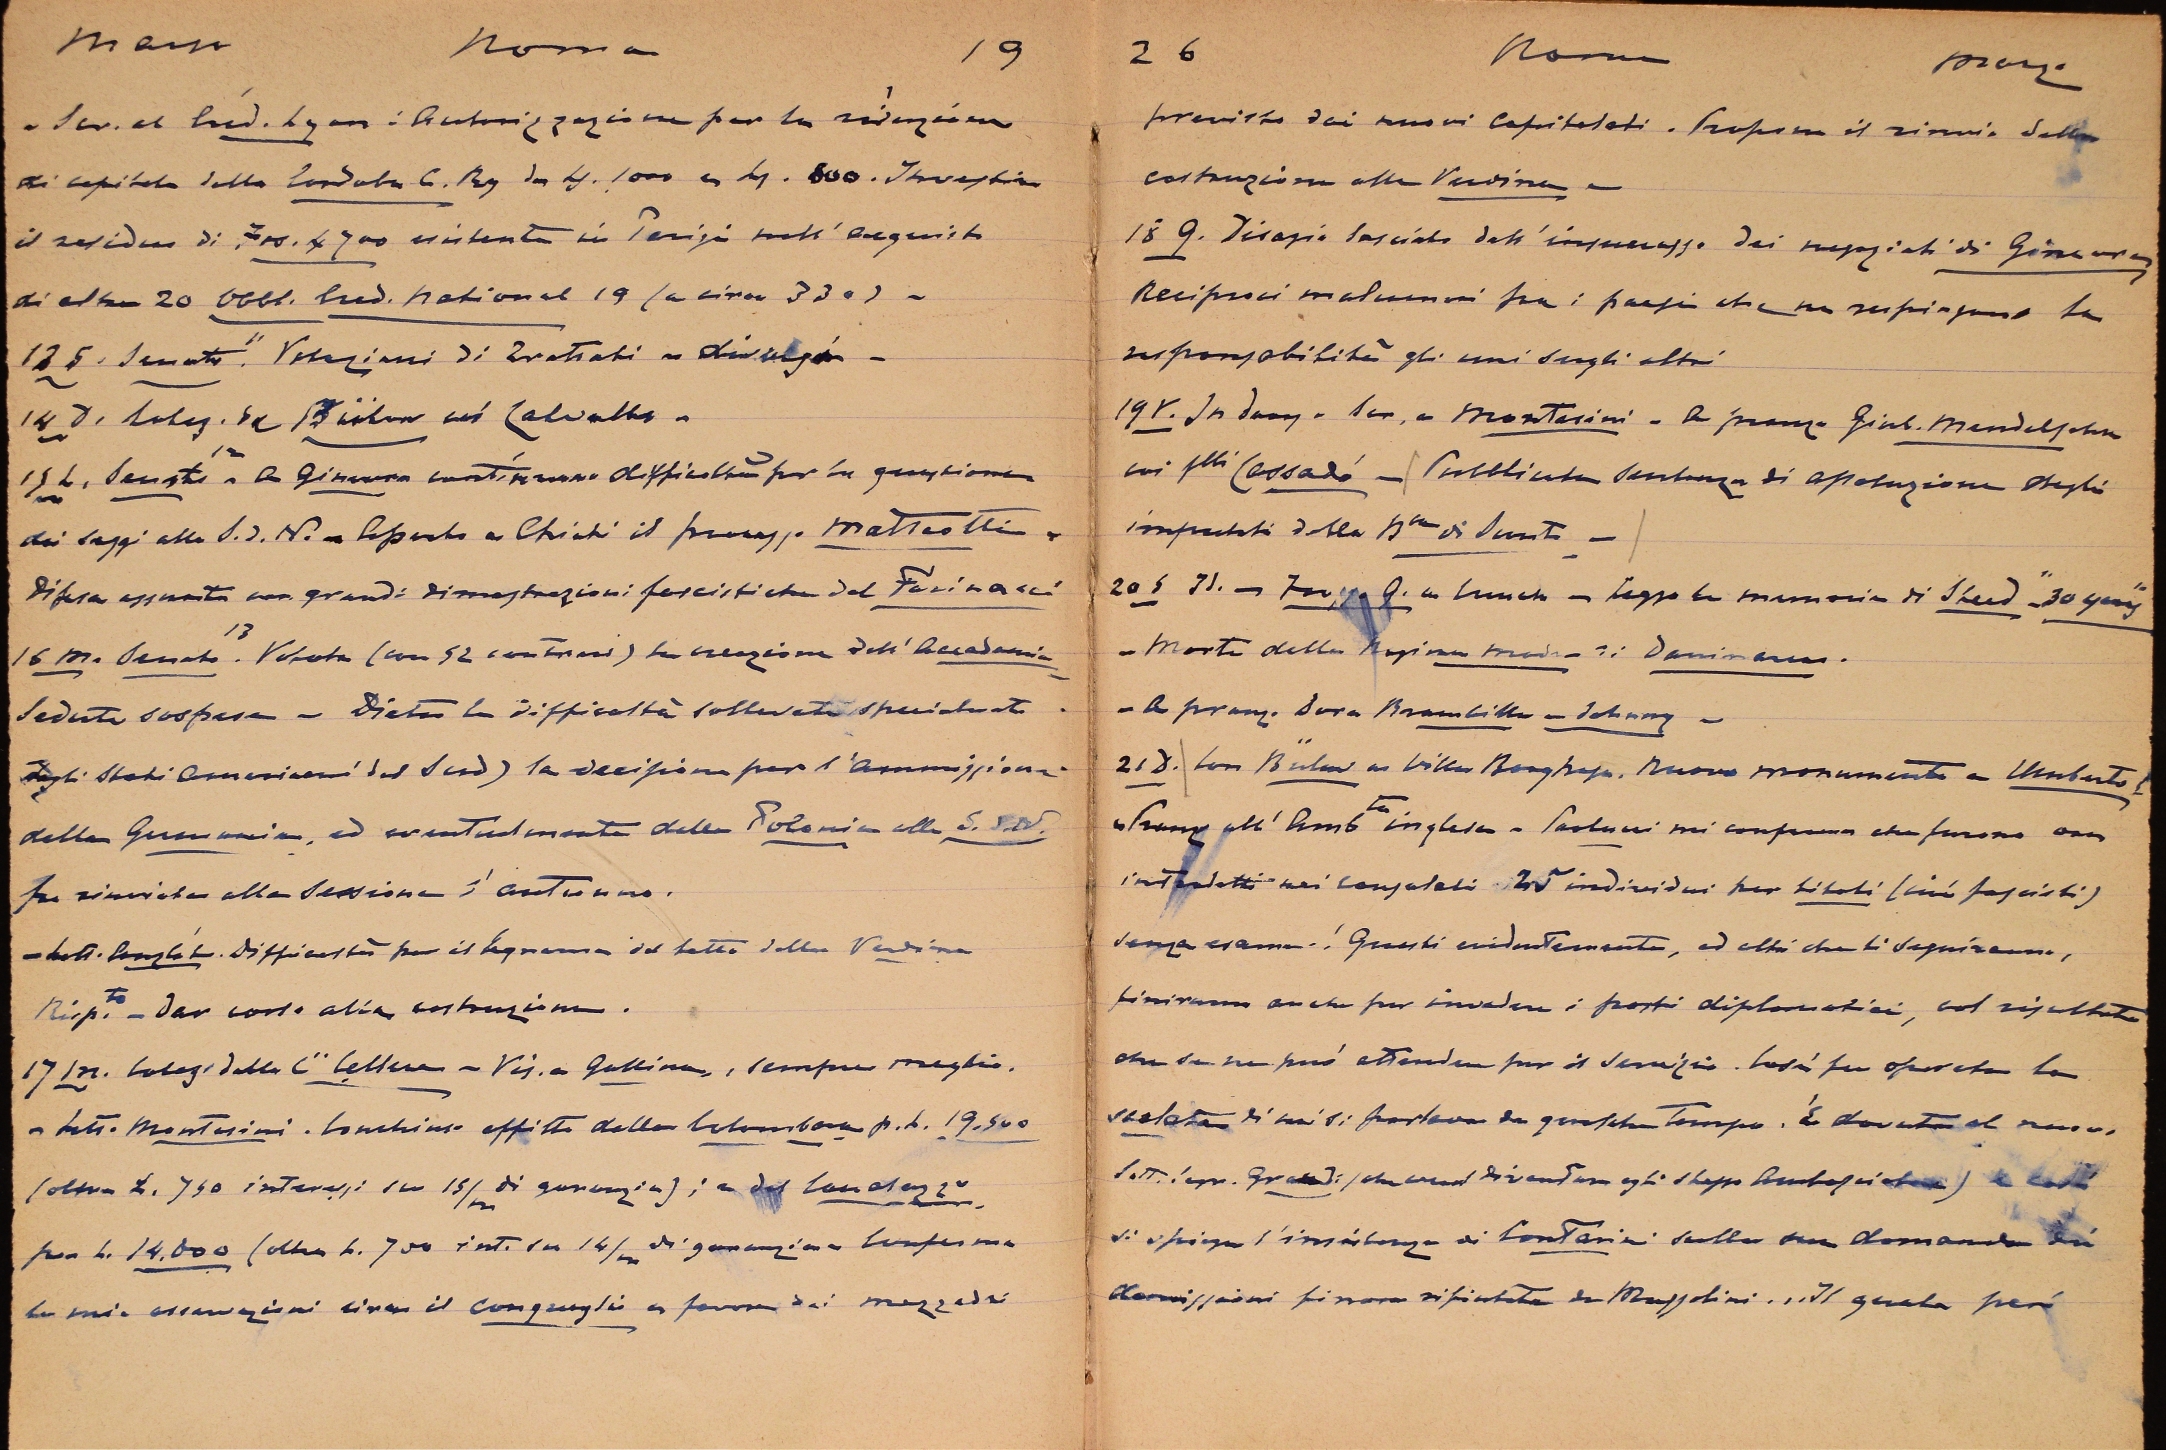 Marzo Roma 19
- Scr. al Créd. Lyon: Autorizzazione per la riduzione
di capitale della Cordoba C. Ry da Ls. 1000 a Ls. 800. Investire
il residuo di Frs. 4700 esistente in Parigi nell'acquisto
di altre 20 Obbl. Créd. National 19 (a circa 330) -
13 S. Senato 11. Votazioni di Trattati e
14 D. Colaz. da Bülow coi Calvalho -
15 L. Senato 12 - A Ginevra continuano difficoltà per la questione
dei seggi alla S.d.N. - Aperto a Chieti il processo Matteotti -
Difesa assunta con grandi dimostrazioni fascistiche dal Farinacci
16 M. Senato 13. Votata (con 52 contrari) la creazione dell'Accademia
Seduta sospesa - Dietro le difficoltà sollevate specialmente
dagli Stati Americani del Sud) la decisione per l'ammissione
della Germania, ed eventualmente della Polonia alla S.d.N.
fu rinviata alla Sessione d'autunno.
- Lett. . Difficoltà per il legname del tetto della Verdina
Risp.to - Dar corso alla costruzione.
17 M. Colaz. dalla C.ssa Cellere - Vis. a Gallina, sempre meglio.
- Lett. Montesini. Concluso affitto della Colombara p. L. 19.500
(oltre L. 750 interessi su 15/m di garanzia); e del
per L. 14.000 (oltre L. 700 int. su 14/m di garanzia - Conferma
le mie osservazioni circa il conguaglio a favore dei mezzadri
26 Roma Marzo
previsto dai nuovi capitolati. Propone il rinvio della
costruzione alla Verdina -
18 G. Disagio lasciato dall'insuccesso dei negoziati di Ginevra
Reciproci malumori fra i paesi che ne respingono la
responsabilità gli uni sugli altri
19 V. Scr. a Montesini - A pranzo Giul. Mendelssohn
coi flli Cassadó - Pubblicata sentenza di assoluzione degli
imputati della Bca di Sconto -
20 S G. a lunch - Leggo le memorie di Steed "30 years"
- Morte della Regina madre di Danimarca.
- A pranzo Dora Brambilla -
21 D. Con Bülow a Villa Borghese. Nuovo monumento a Umberto I
- Pranzo all'Amb.ta inglese - Paolucci mi conferma che furono ora
nei consolati 25 individui per titoli (cioè fascisti)
senza esame! Questi evidentemente, ed altri che li seguiranno,
finiranno anche per invadere i posti diplomatici, col risultato
che se ne può attendere per il Servizio. Così fu operata la
scalata di cui si parlava da qualche tempo. È dovuta al nuovo
Sott. segr. Grandi (che vuol diventare egli stesso Ambasciatore) e così
si spiega l'insistenza di Contarini sulla sua domanda di
dimissioni finora rifiutate da Mussolini... Il quale però